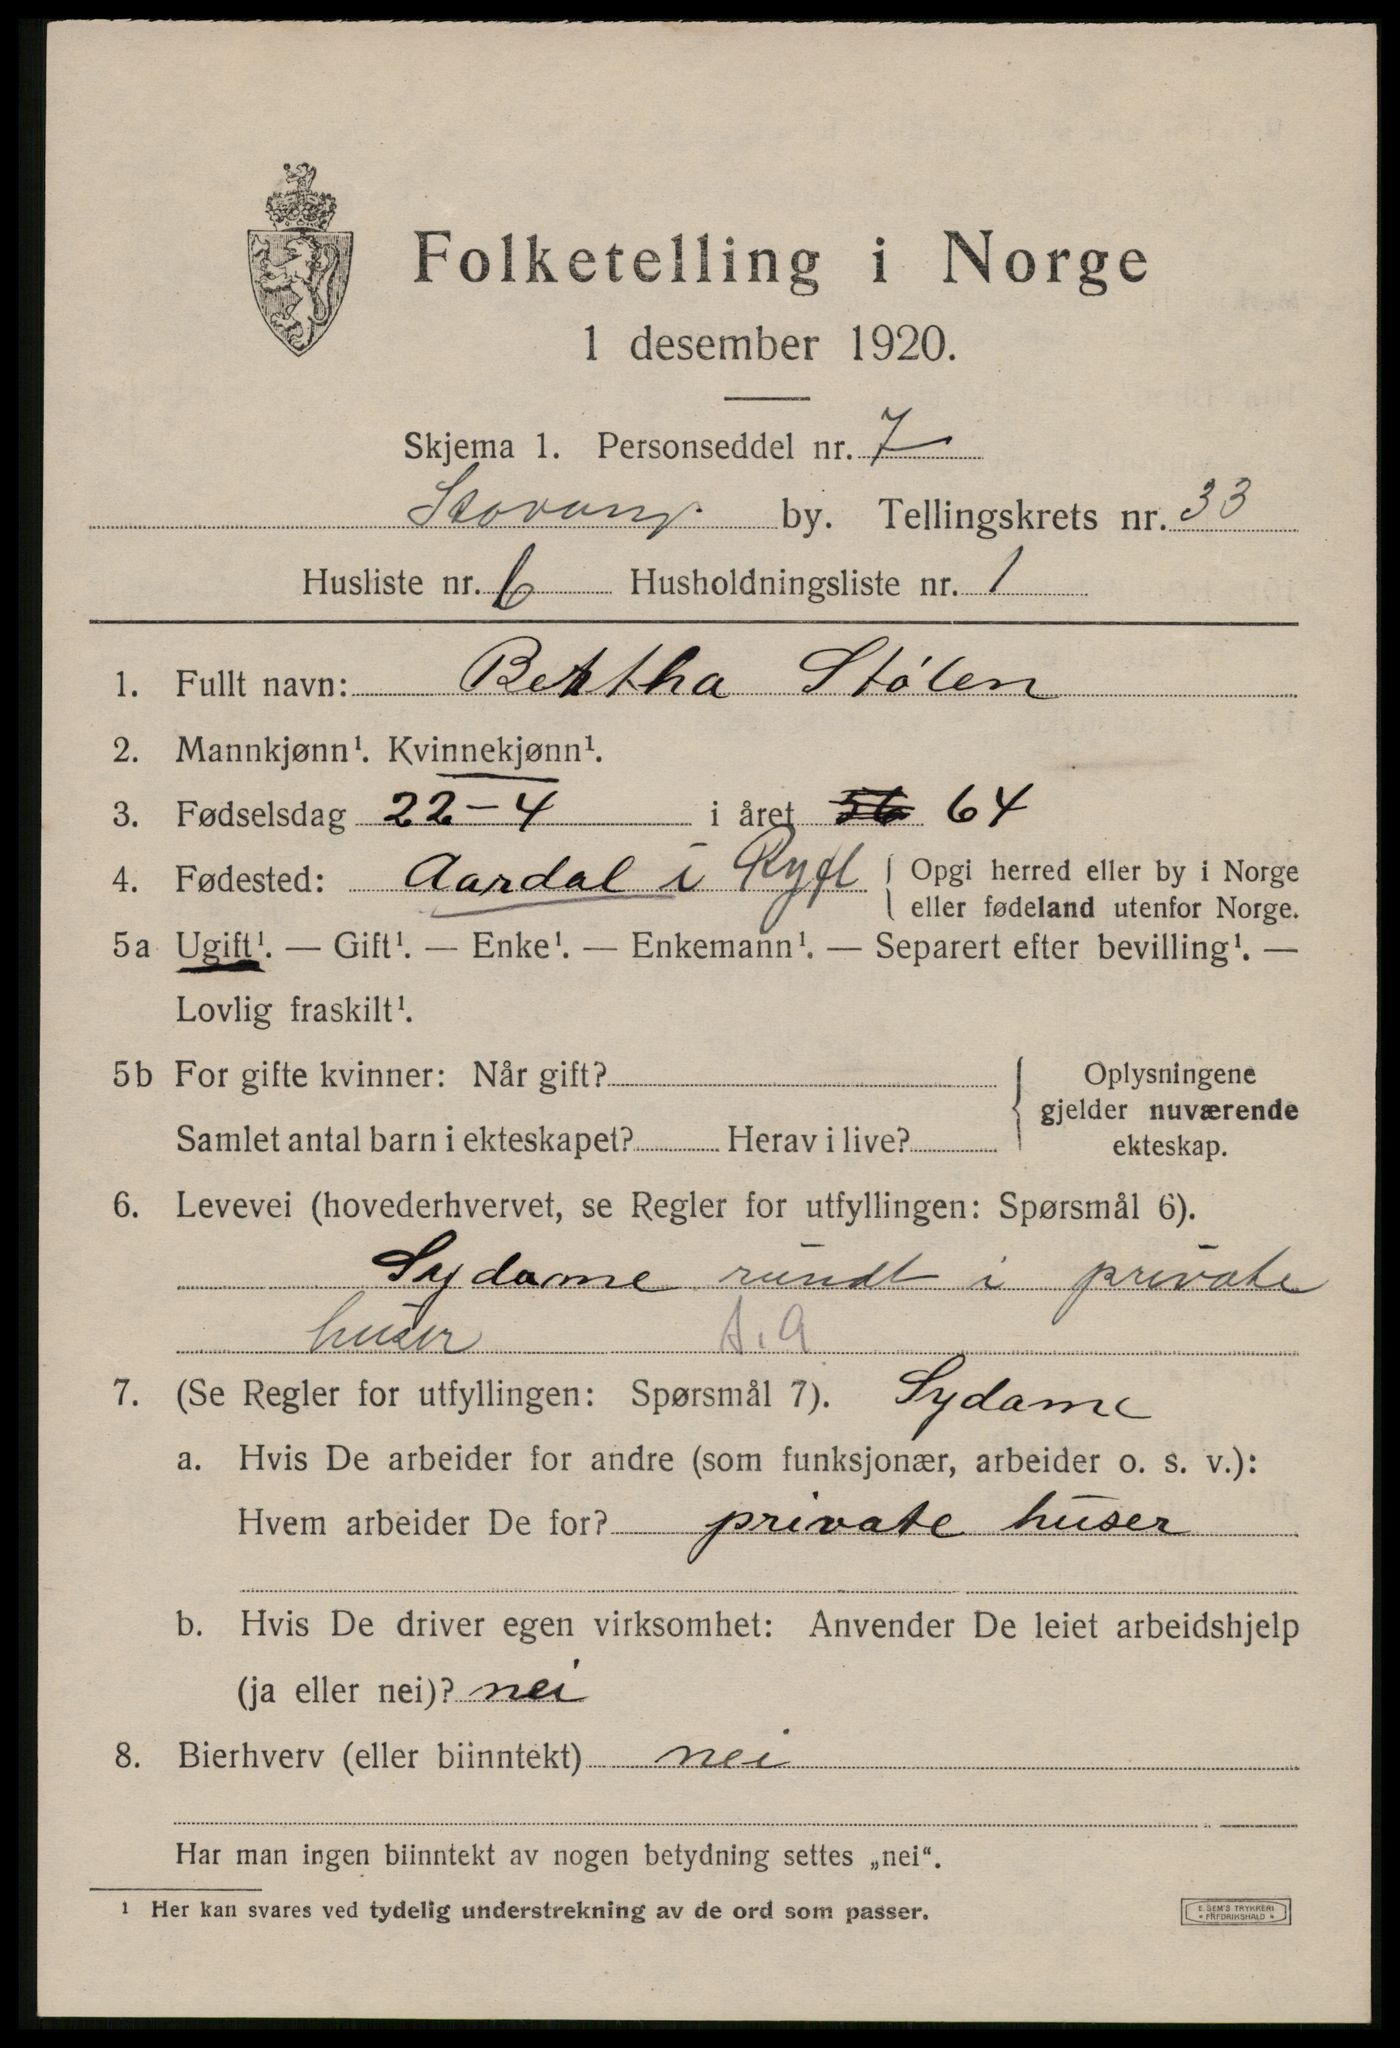 Folketelling i Norge
1 desember 1920.
Skjema 1. Personseddel nr. 7
Stavang. by. Tellingskrets nr. 33
Husliste nr. 6 Husholdningsliste nr. 1
1. Fullt navn: Bertha Stølen
2. Mannkjønn¹. Kvinnekjønn¹.
3. Fødselsdag 22-4 i året 56 64
4. Fødested: Aardal i Ryfl { Opgi herred eller by i Norge
eller fødeland utenfor Norge.
5a Ugift¹. — Gift¹. — Enke¹. — Enkemann¹. — Separert efter bevilling¹. —
Lovlig fraskilt¹.
5b For gifte kvinner: Når gift? { Oplysningene
gjelder nuværende
Samlet antal barn i ekteskapet? Herav i live? ekteskap.
6. Levevei (hovederhvervet, se Regler for utfyllingen: Spørsmål 6).
Sydame rundt i private
huser A.A
7. (Se Regler for utfyllingen: Spørsmål 7). Sydame
a. Hvis De arbeider for andre (som funksjonær, arbeider o. s. v.):
Hvem arbeider De for? private huser
b. Hvis De driver egen virksomhet: Anvender De leiet arbeidshjelp
(ja eller nei)? nei
8. Bierhverv (eller biinntekt) nei
Har man ingen biinntekt av nogen betydning settes „nei“.
¹ Her kan svares ved tydelig understrekning av de ord som passer.
E. SEM'S TRYKKERI
* FREDRIKSHALD *